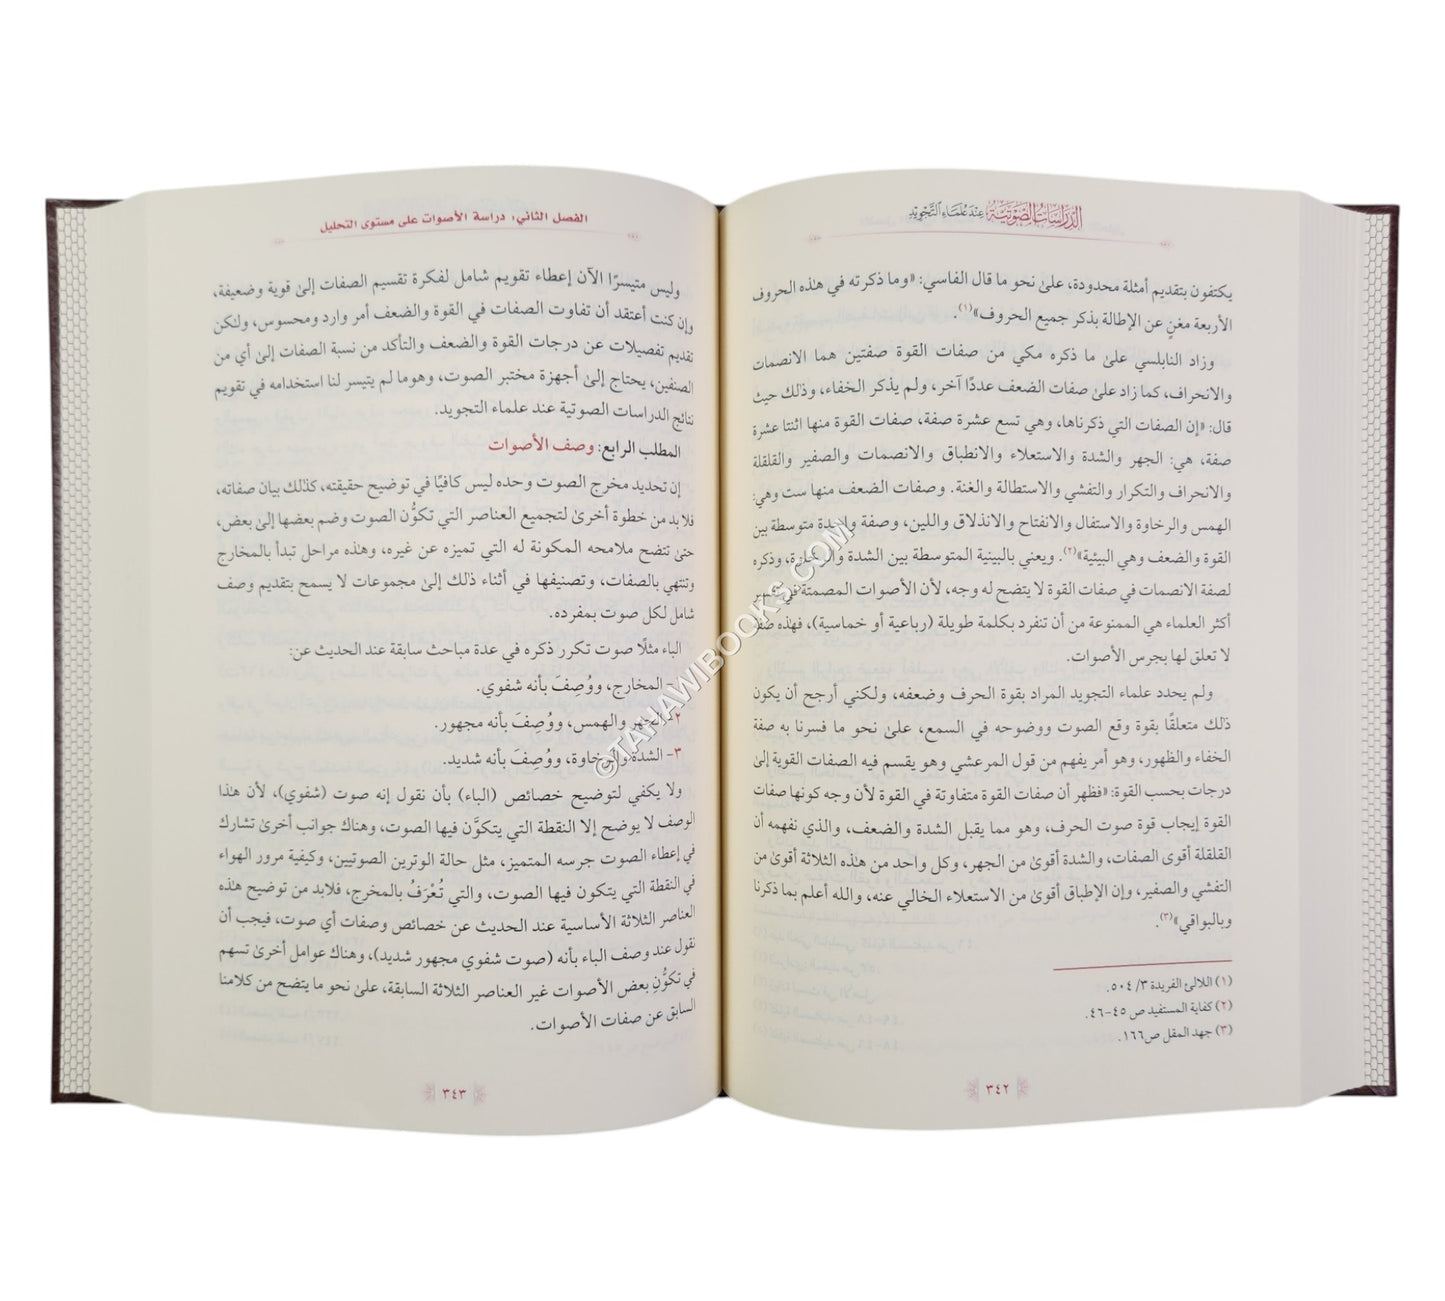 الدراسات الصوتية عند علماء التجويد
يكتفون بتقديم أمثلة محدودة، علىٰ نحو ما قال الفاسي: «وما ذكرته في هذه الحروف
الأربعة مغنٍ عن الإطالة بذكر جميع الحروف»(١).
وزاد النابلسي علىٰ ما ذكره مكي من صفات القوة صفتين هما الانصمات
والانحراف، كما زاد علىٰ صفات الضعف عددًا آخر، ولم يذكر الخفاء، وذلك حيث
قال: «إن الصفات التي ذكرناها، وهي تسع عشرة صفة، صفات القوة منها اثنتا عشرة
صفة، هي: الجهر والشدة والاستعلاء والانطباق والانصمات والصفير والقلقلة
والانحراف والتكرار والتفشي والاستطالة والغنة. وصفات الضعف منها ست وهي:
الهمس والرخاوة والاستفال والانفتاح والانذلاق واللين، وصفة واحدة متوسطة بين
القوة والضعف وهي البيئية»(٢). ويعني بالبينية المتوسطة بين الشدة والرخاوة، وذكره
لصفة الانصمات في صفات القوة لا يتضح له وجه، لأن الأصوات المصمتة في
أكثر العلماء هي الممنوعة من أن تنفرد بكلمة طويلة (رباعية أو خماسية)، فهذه
لا تعلق لها بجرس الأصوات.
ولم يحدد علماء التجويد المراد بقوة الحرف وضعفه، ولكني أرجح أن يكون
ذلك متعلقًا بقوة وقع الصوت ووضوحه في السمع، علىٰ نحو ما فسرنا به صفة
الخفاء والظهور، وهو أمر يفهم من قول المرعشي وهو يقسم فيه الصفات القوية إلىٰ
درجات بحسب القوة: «فظهر أن صفات القوة متفاوتة في القوة لأن وجه كونها صفات
القوة إيجاب قوة صوت الحرف، وهو مما يقبل الشدة والضعف، والذي نفهمه أن
القلقلة أقوى الصفات، والشدة أقوىٰ من الجهر، وكل واحد من هذه الثلاثة أقوىٰ من
التفشي والصفير، وإن الإطباق أقوىٰ من الاستعلاء الخالي عنه، والله أعلم بما ذكرنا
وبالبواقي»(٣).
(١) اللالئ الفريدة ٣/ ٥٠٤.
(٢) كفاية المستفيد ص ٤٥-٤٦.
(٣) جهد المقل ص١٦٦.
٣٤٢
الفصل الثاني: دراسة الأصوات على مستوى التحليل
وليس متيسرًا الآن إعطاء تقويم شامل لفكرة تقسيم الصفات إلىٰ قوية وضعيفة،
وإن كنت أعتقد أن تفاوت الصفات في القوة والضعف أمر وارد ومحسوس، ولكن
تقديم تفصيلات عن درجات القوة والضعف والتأكد من نسبة الصفات إلىٰ أي من
الصنفين، يحتاج إلىٰ أجهزة مختبر الصوت، وهوما لم يتيسر لنا استخدامه في تقويم
نتائج الدراسات الصوتية عند علماء التجويد.
المطلب الرابع: وصف الأصوات
إن تحديد مخرج الصوت وحده ليس كافيًا في توضيح حقيقته، كذلك بيان صفاته،
فلابد من خطوة أخرىٰ لتجميع العناصر التي تكوُّن الصوت وضم بعضها إلىٰ بعض،
حتىٰ تتضح ملامحه المكونة له التي تميزه عن غيره، وهذه مراحل تبدأ بالمخارج
وتنتهي بالصفات، وتصنيفها في أثناء ذلك إلىٰ مجموعات لا يسمح بتقديم وصف
شامل لكل صوت بمفرده.
الباء مثلًا صوت تكرر ذكره في عدة مباحث سابقة عند الحديث عن:
- المخارج، ووُصِفَ بأنه شفوي.
٢- الجهر والهمس، ووُصِفَ بأنه مجهور.
٣- الشدة والرخاوة، ووُصِفَ بأنه شديد.
ولا يكفي لتوضيح خصائص (الباء) بأن نقول إنه صوت (شفوي)، لأن هذا
الوصف لا يوضح إلا النقطة التي يتكوَّن فيها الصوت، وهناك جوانب أخرىٰ تشارك
في إعطاء الصوت جرسه المتميز، مثل حالة الوترين الصوتيين، وكيفية مرور الهواء
في النقطة التي يتكون فيها الصوت، والتي تُعْرَفُ بالمخرج، فلابد من توضيح هذه
العناصر الثلاثة الأساسية عند الحديث عن خصائص وصفات أي صوت، فيجب أن
نقول عند وصف الباء بأنه (صوت شفوي مجهور شديد)، وهناك عوامل أخرىٰ تسهم
في تكوُّنِ بعض الأصوات غير العناصر الثلاثة السابقة، علىٰ نحو ما يتضح من كلامنا
السابق عن صفات الأصوات.
٣٤٣
©TAHAWIBOOKS.COM